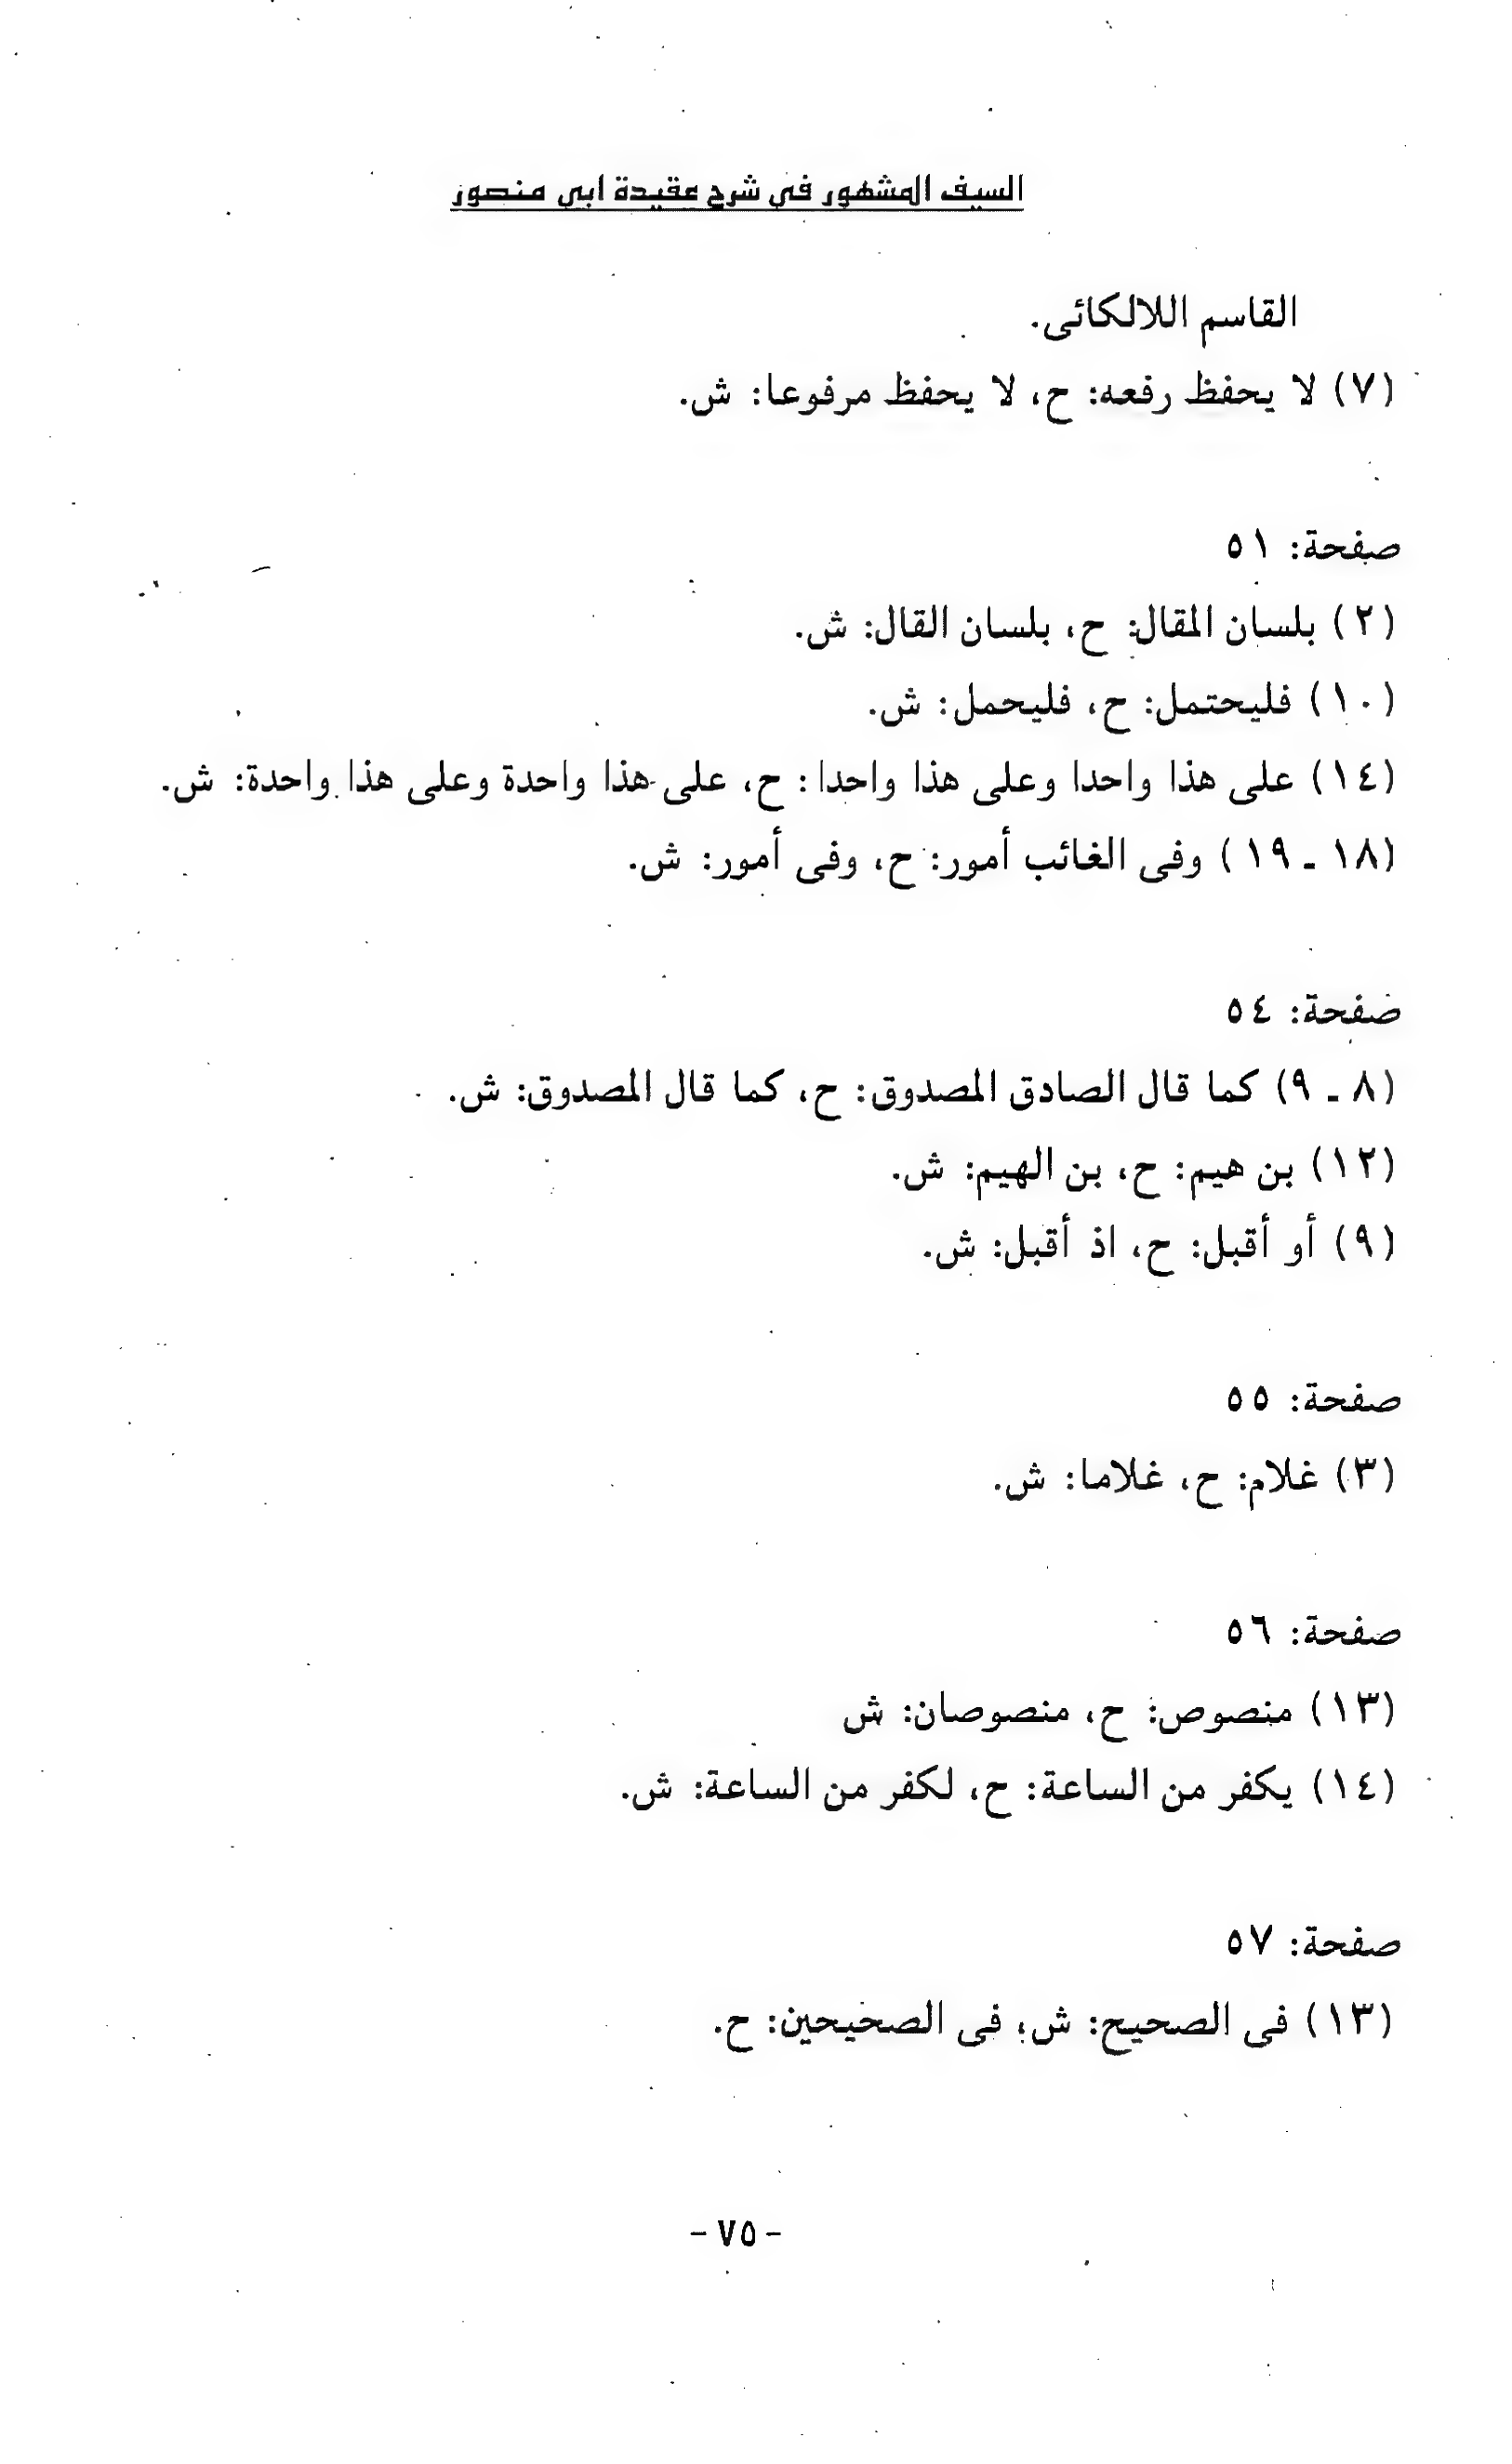 السيف المشهور في شرح عقيدة ابي منصور
القاسم اللالكائى.
(٧) لا يحفظ رفعه: ح، لا يحفظ مرفوعا: ش.
صفحة: ٥١
(٢) بلسان المقال: ح، بلسان القال: ش.
(١٠) فليحتمل: ح، فليحمل: ش.
(١٤) على هذا واحدا وعلى هذا واحدا: ح، على هذا واحدة وعلى هذا واحدة: ش.
(١٨ ـ ١٩) وفى الغائب أمور: ح، وفى أمور: ش.
صفحة: ٥٤
(٨ ـ ٩) كما قال الصادق المصدوق: ح، كما قال المصدوق: ش.
(١٢) بن هيم: ح، بن الهيم: ش.
(٩) أو أقبل: ح، اذ أقبل: ش.
صفحة: ٥٥
(٣) غلام: ح، غلاما: ش.
صفحة: ٥٦
(١٣) منصوص: ح، منصوصان: ش
(١٤) يكفر من الساعة: ح، لكفر من الساعة: ش.
صفحة: ٥٧
(١٣) فى الصحيح: ش؛ فى الصحيحين: ح.
- ٧٥ -